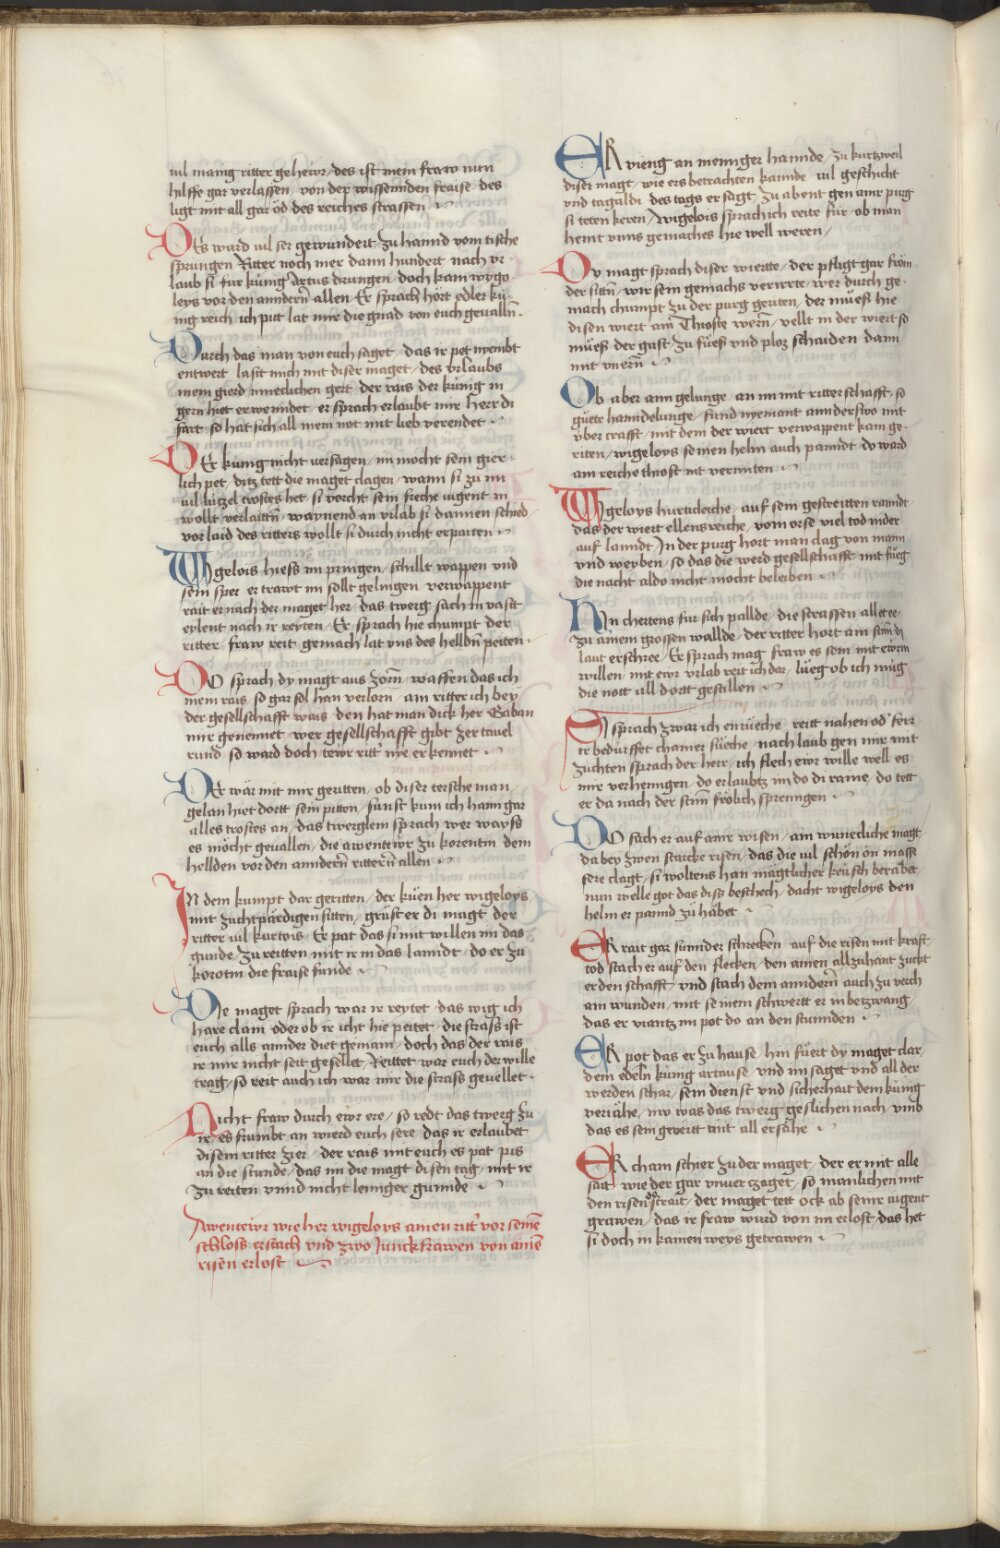 vil manig ritter gehewr / des ist mein fraw nun
hilffe gar verlassen / von der wissennden fraise / des
ligt mit all gar öd des reiches strassen
Es ward vil ser gewundert / zu hannd vom tische
sprungen / Ritter noch mer dann hundert / nach vr
laub si fur kunig Artus drungen / doch kam wygo
leys vor den anndern allen / Er sprach hört edler kü
nig reich / ich pitt lat mir die gnad von euch geualln
Durch das man von euch saget / das ir pet nyembt
entwert / lasst mich mit diser maget / des vrlaubs
mein gird innecklichen gert / der rais der künig in
gern hiet erwenndet / er sprach erlaubt mir herr di
fart / so hat sich all mein not mit lieb verendet
Der kunig nicht versagen / im mocht sein gier
lich pet / ditz tett die maget clagen / wann si zu im
vil lützel trostes het / si vorcht sein freche iugent in
wollt verlaittn / waynend an vrlab si dannen schied
vor laid des ritters wollt si durch nicht erpaiten
Wigelois hiess im pringen / schillt wappen vnd
sein sper / er trawt im sollt gelingen / verwappent
rait er nach der maget her / das twerg sach in vasst
eylent nach ir reyten / Er sprach hie chumpt der
ritter / fraw reit gemach lat vns des helldn peiten
Do sprach dy magt aus zorn / waffen das ich
mein rais / so gar sol han verlorn / am ritter ich bey
der gesellschafft wais / den hat man dick her Gaban
mir genennet / wer gesellschafft gibt zer tauel
rund / so ward doch tewr ritt' nye erkennet
Der wär mit mir geritten / ob diser tersche man
gelan hiet dortt sein pitten / sunst kum ich hann gar
alles trostes an / das twerglein sprach wer wayss
es möcht geuallen / die awentewr zu korentin dem
hellden vor den anndern rittern allen
In dem kumpt dar geritten / der küen her wigeloys
mit zuchtpärdigen sitten / grüst er di magt der
ritter vil kurtois / Er pat das si mit willen im das
gunde / zu reitten mit ir in das lanndt / do er zu
korotin die fraise funde
Die maget sprach war ir reytet / das wig ich
hare clain / oder ob ir icht hie peitet / die strass ist
euch alls annder diet gemain / doch das der rais
ir mir nicht seit gesellet / Reittet war euch der wille
trag / so reit auch ich war mir die strass geuellet
Nicht fraw durch ewr ere / so redt das twerg zu
ir / es frumbt an wierd euch sere / das ir erlaubet
disem ritter zier / der rais mit euch es pat pis
an die stunde / das im die magt disen tag / mit ir
zu reiten vnnd nicht lennger gunnde
Awentewr wie her wigeloys ainen ritt' vor seinem
schloss erstach vnd zwo Junckfrawen von ainem
risen erlost
Er vieng an menniger hannde / zu kurtzweil
diser magt / wie ers betrachten kannde / vil geschicht
vnd tagaldi / des tags er sagt / zu abent gen ainr purg
si teten keren / wigelois sprach ich reite für / ob man
heint vnns gemaches hie well weren /
Dy magt sprach diser wiertte / der pfligt gar fröm
der sittn / wir sein gemachs verirrte / wer durch ge
mach chumpt zu der purg geriten / der müess hie
disen wiert ain Thioste wern / vellt in der wiert so
müess der gast zu füess vnd ploz schaiden dann
mit vnern
Ob aber ainn gelunge / an im mit ritterschafft / so
güete hanndelunge / fund nyemant annderstwo mit
vber crafft / mit dem der wiert verwappent kam ge
riten / wigeloys seinen helm auch panndt / do ward
ain reiche thiost nit vermiten
Wigeloys hurticleiche / auf sein gestreitten ranndt
das der wiert ellensreiche / vom orse viel tod nider
auf lanndt / In der purg hort man clag von mann
vnd weyben / so das die werd gesellschafft mit füeg
die nacht aldo nicht mocht beleiben
In chertens für sich pallde / die strassen allee
zu ainem grossen wallde / der ritter hort ain stim dy
laut erschree / Er sprach mag fraw es sein mit ewrm
willen / mit ewr vrlab reit ich dar / lüeg ob ich müg
die nott vil dortt gestillen
Si sprach zwar ich enrüeche / reitt nahen od' ferr
ir bedurffet chainer süeche / nach laub gen mir mit
züchten sprach der herr / ich flech ewr wille well es
mir verhenngen / do erlaubtz im do di raine / do tett
er da nach der stim frölich sprenngen
Do sach er auf ainr wisen / ain wunecliche magt
da bey zwen starcke risen / das die vil schön on masse
sere clagt / si woltens han mägtlicher keusch beräbet
nun welle got das diss beschech / dacht wigeloys den
helm er pannd zü häbet
Er rait gar sunnder schrecken / auf die risen mit kraft
tod stach er auf den flecken / den ainen allzuhant zuckt
er den schafft / vnd stach dem anndern auch zu verch
ain wunden / mit seinem schwertt er in betzwang
das er viantz im pot do an den stunnden
Er pot das er zu hause / hin fuert dy maget clar
dem edeln kunig artause / vnd im saget vnd all der
werden schar / sein dienst vnd sicherhait dem künig
veriähe / nw was das twerg geslichen nach / vmb
das es sein gevertt mit all ersähe
Er cham schier zu der maget / der er mit alle
sait / wie der gar vnuertzaget / so manlichen mit
den risen strait / der maget tett ock ab seinr iugent
grawen / das ir fraw wurd von im erlost / das het
si doch in kainen weys getrawen